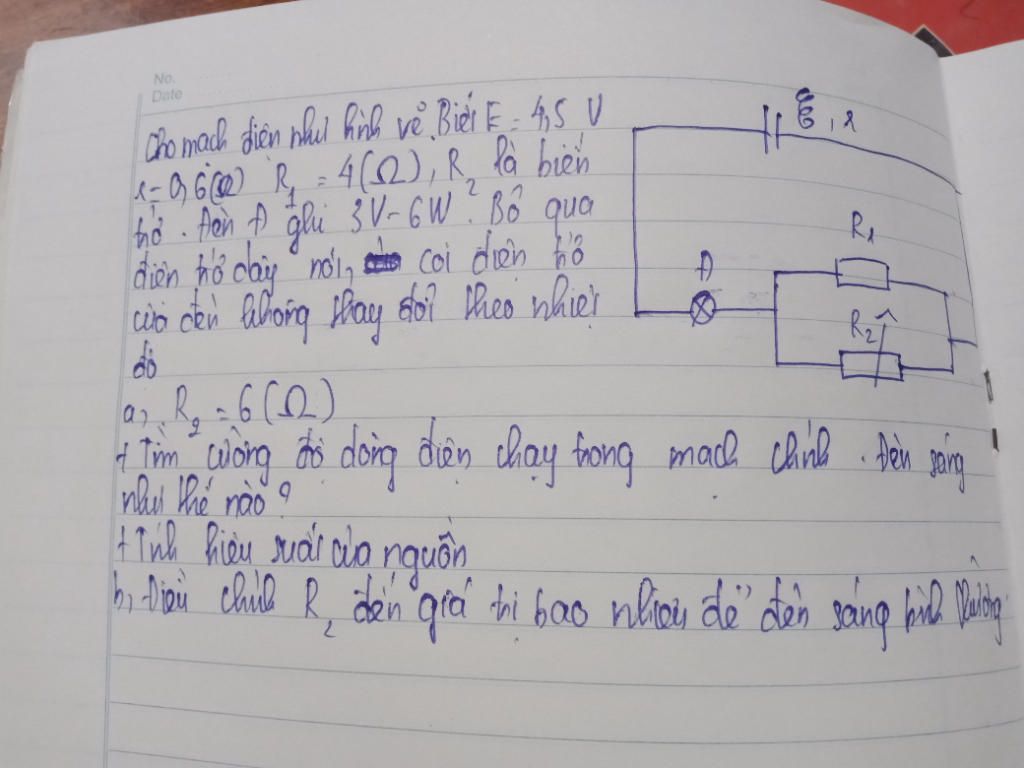 No.
Date
Cho mạch điện như hình vẽ. Biết E = 4,5 V
r = 0,6(Ω) R₁ = 4(Ω), R₂ là biến
trở. Đèn Đ ghi 3V-6W. Bỏ qua
điện trở dây nối, coi điện trở
của đèn không thay đổi theo nhiệt
độ
a, R₂ = 6(Ω)
+ Tìm cường độ dòng điện chạy trong mạch chính. Đèn sáng
như thế nào?
+ Tính hiệu suất của nguồn
b, Điều chỉnh R₂ đến giá trị bao nhiêu để đèn sáng bình thường
E, r
R₁
Đ
R₂